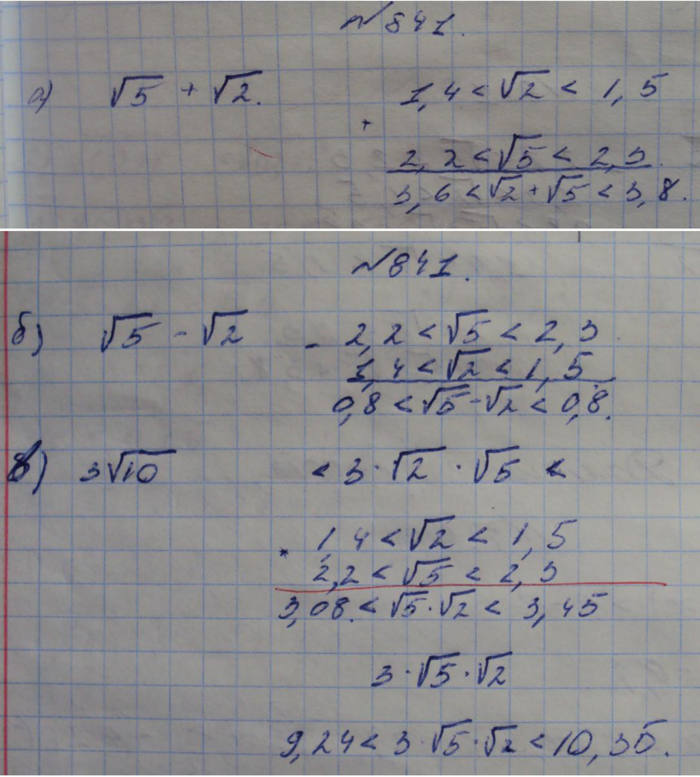 №841.
а) √5 + √2.
1,4 < √2 < 1,5
+
2,2 < √5 < 2,3.
3,6 < √2 + √5 < 3,8.
№841.
б) √5 - √2
- 2,2 < √5 < 2,3.
1,4 < √2 < 1,5.
0,8 < √5 - √2 < 0,8.
в) 3√10
< 3 · √2 · √5 <
* 1,4 < √2 < 1,5
2,2 < √5 < 2,3
3,08. < √5 · √2 < 3,45
3 · √5 · √2
9,24 < 3 · √5 · √2 < 10,35.